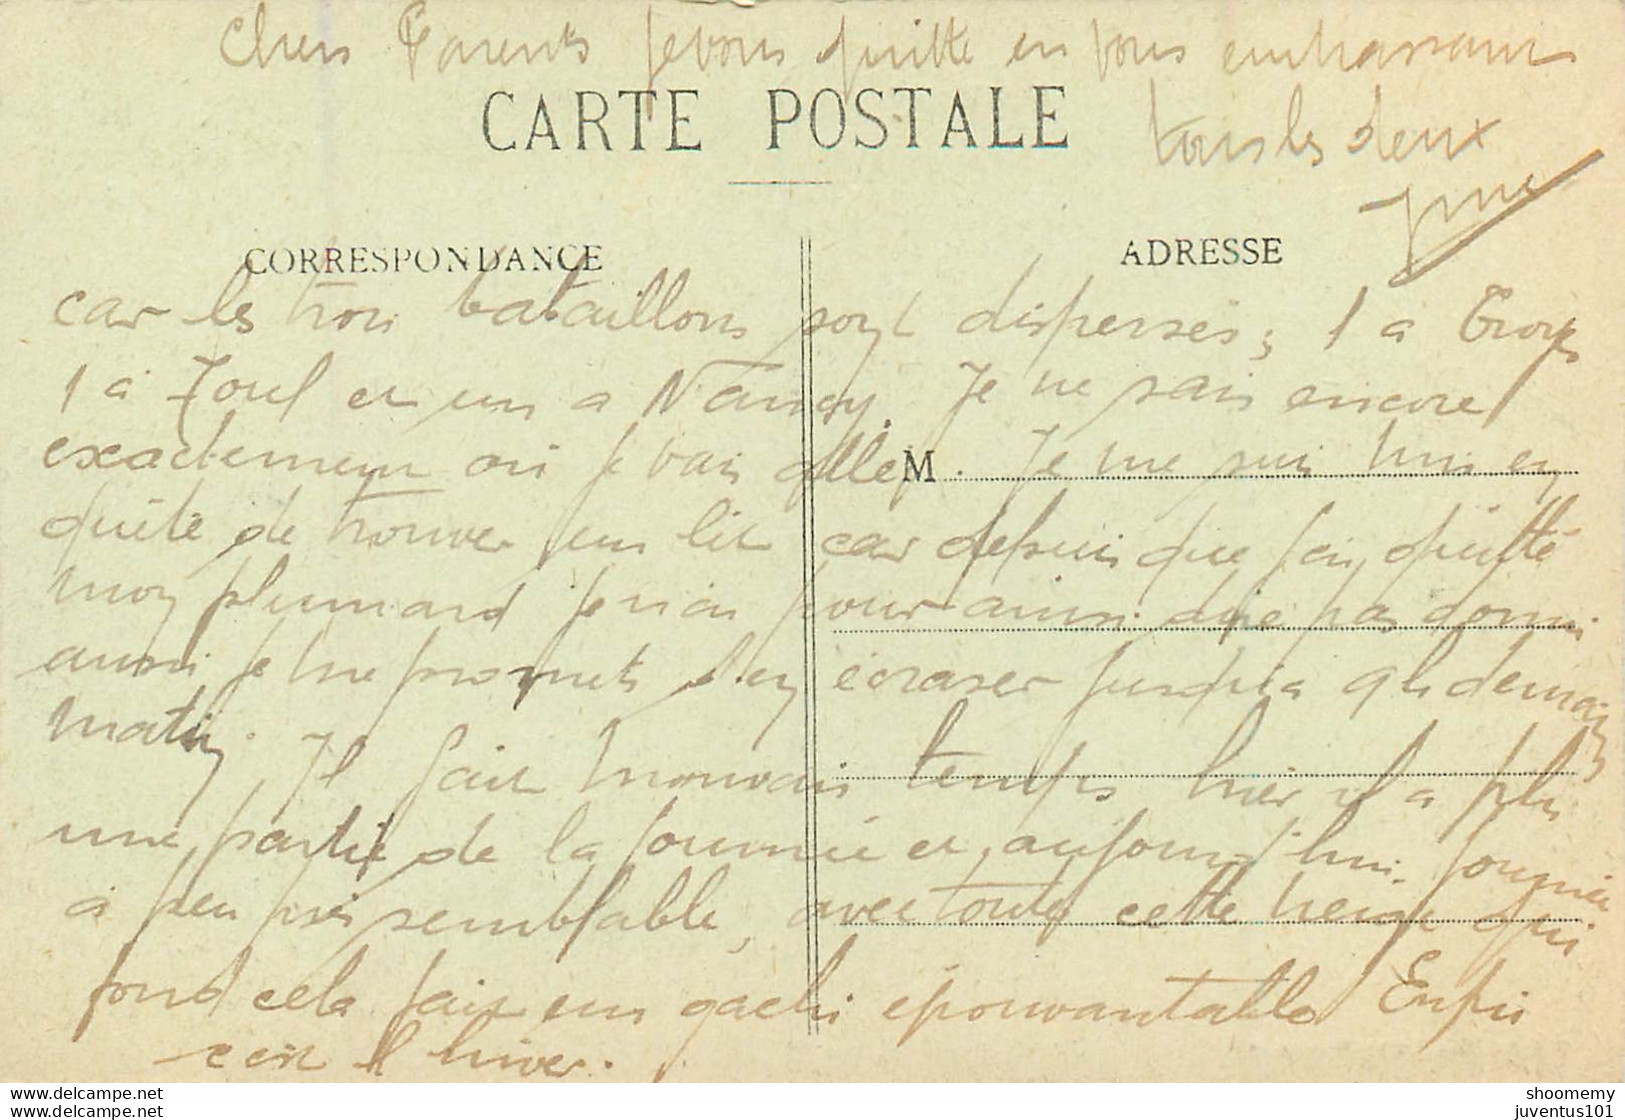 Chers Parents je vous quitte en vous embrassant
CARTE POSTALE
tous les deux
CORRESPONDANCE
ADRESSE
car les trois bataillons sont dispersés ; 1 a Troyes
1 à Toul et un a Nancy. Je ne sais encore
exactement où je vais aller. Je me suis mis en
M
quête de trouver un lit car depuis que j'ai quitté
mon plumard je n'ai pour ainsi dire pas dormi
aussi je me promets d'en écraser jusqu'a 9h demain
matin. Il fait mauvais temps hier il a plu
une partie de la journée et aujourd'hui journée
a peu près semblable, avec toute cette neige qui
fond cela fait un gachi épouvantable Enfin
c'est l'hiver.
shoomemy
juventus101